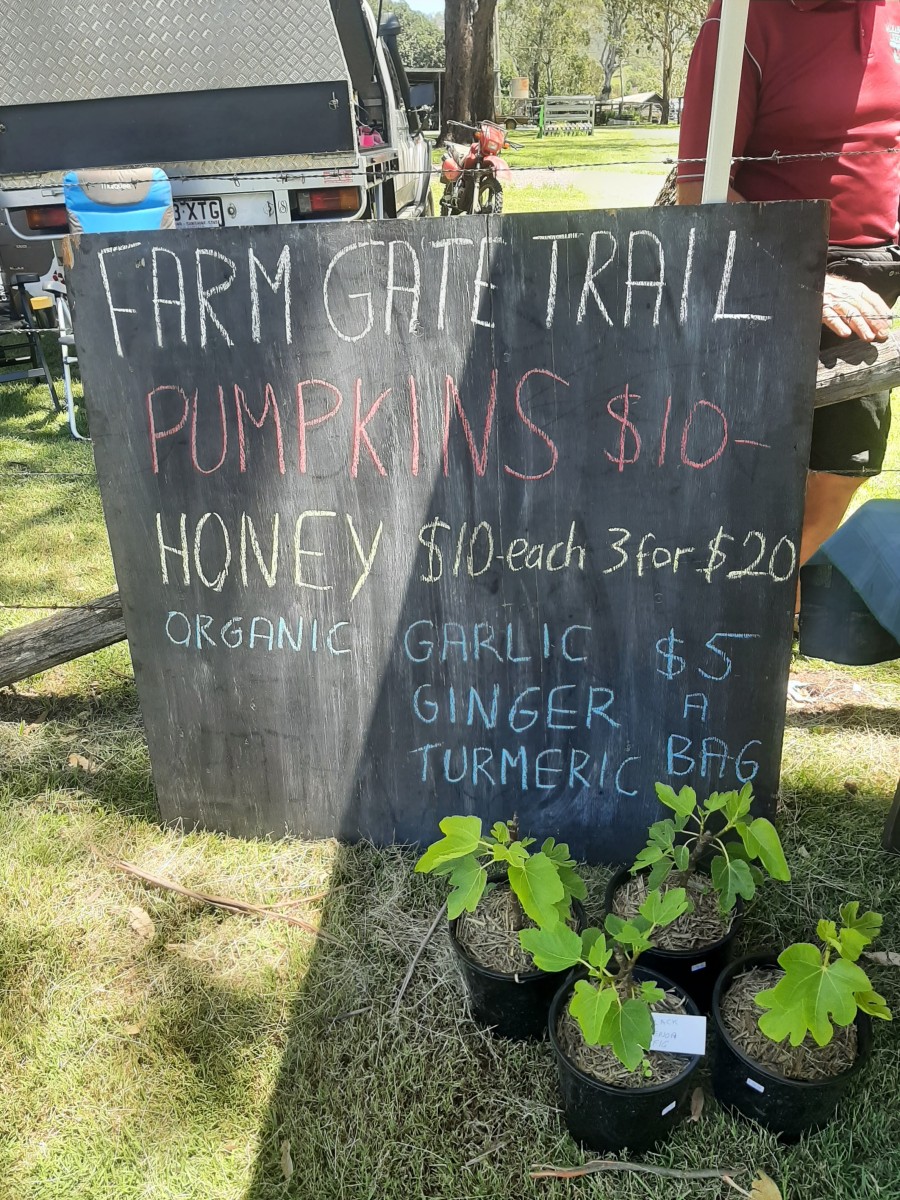 FARM GATE TRAIL
PUMPKINS $10-
HONEY $10-each 3 for $20
ORGANIC GARLIC $5
GINGER A
TURMERIC BAG
XTG